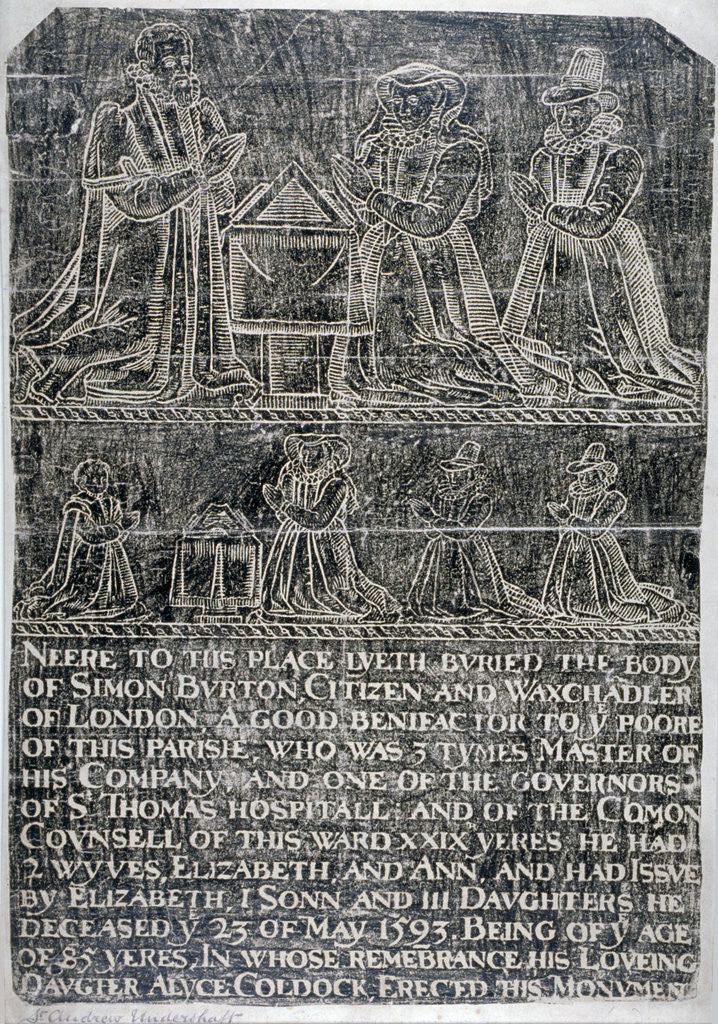 NEERE TO THS PLACE LYETH BVRIED THE BODY
OF SIMON BVRTON, CITIZEN AND WAXCHADLER
OF LONDON, A GOOD BENIFACTOR TO Yᴱ POORE
OF THIS PARISHE, WHO WAS 3 TYMES MASTER OF
HIS COMPANY, AND ONE OF THE GOVERNORS
OF Sᵀ THOMAS HOSPITALL AND OF THE COMON
COVNSELL OF THIS WARD XXIX YERES HE HAD
2 WYVES, ELIZABETH, AND ANN, AND HAD ISSVE
BY ELIZABETH, I SONN AND III DAVGHTERS, HE
DECEASED Yᴱ 23 OF MAY 1593, BEING OF Yᴱ AGE
OF 85 YERES, IN WHOSE REMEBRANCE, HIS LOVEING
DAVGTER ALYCE COLDOCK, ERECTED THIS MONVMENT
St Andrew Undershaft